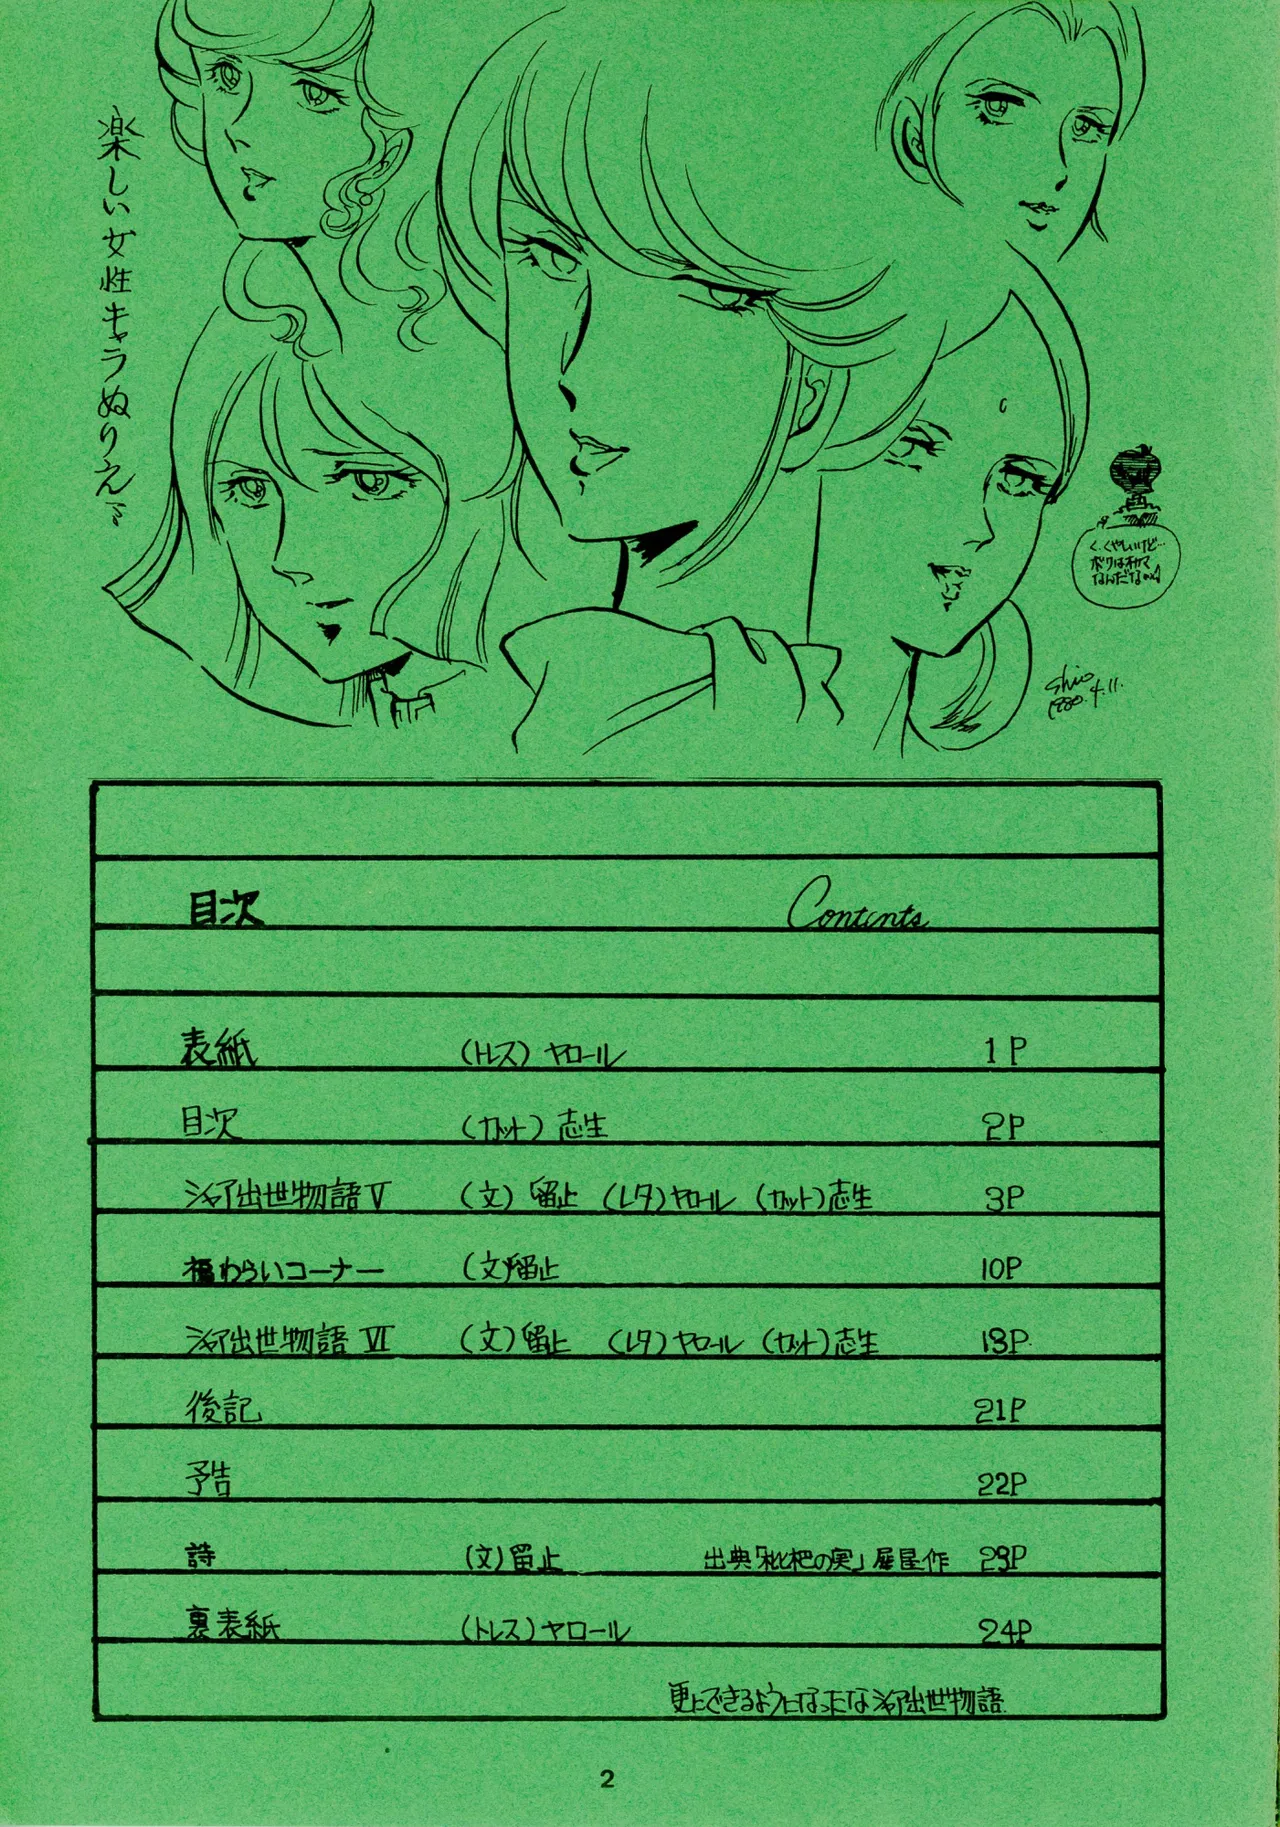 楽しい女性キャラぬりえ
く、くやしいけど…
ボクはオカマ
なんだなの
Shio
1980.4.11.
目次 Contents
表紙 (トレス) ヤロール 1P
目次 (カット) 志生 2P
シャア出世物語Ⅴ (文) 留止 (レタ) ヤロール (カット) 志生 3P
福わらいコーナー (文) 留止 10P
シャア出世物語Ⅵ (文) 留止 (レタ) ヤロール (カット) 志生 13P
後記 21P
予告 22P
詩 (文) 留止 出典「枇杷の実」犀星作 23P
裏表紙 (トレス) ヤロール 24P
更にできるようになったなシャア出世物語
2